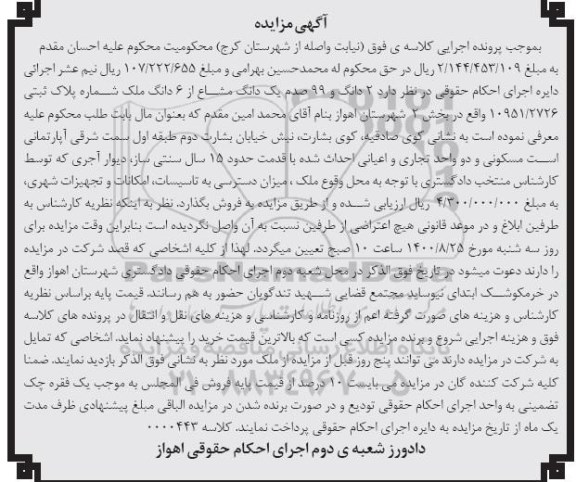 آگهی مزایده
بموجب پرونده اجرایی کلاسه ی فوق (نیابت واصله از شهرستان کرج) محکومیت محکوم علیه احسان مقدم
به مبلغ ۲/۱۴۴/۴۵۳/۱۰۹ ریال در حق محکوم له محمدحسین بهرامی و مبلغ ۱۰۷/۲۲۲/۶۵۵ ریال نیم عشر اجرائی
دایره اجرای احکام حقوقی در نظر دارد ۲ دانگ و ۹۹ صدم یک دانگ مشاع از ۶ دانگ ملک شماره پلاک ثبتی
۱۰۹۵۱/۲۷۲۶ واقع در بخش ۲ شهرستان اهواز بنام آقای محمد امین مقدم که بعنوان مال بابت طلب محکوم علیه
معرفی نموده است به نشانی کوی صادقیه، کوی بشارت، نبش خیابان بشارت دوم طبقه اول سمت شرقی آپارتمانی
است مسکونی و دو واحد تجاری و اعیانی احداث شده با قدمت حدود ۱۵ سال سنتی ساز، دیوار آجری که توسط
کارشناس منتخب دادگستری با توجه به محل وقوع ملک ، میزان دسترسی به تاسیسات، امکانات و تجهیزات شهری،
به مبلغ ۴/۳۰۰/۰۰۰/۰۰۰ ریال ارزیابی شده و از طریق مزایده به فروش بگذارد. نظر به اینکه نظریه کارشناس به
طرفین ابلاغ و در موعد قانونی هیچ اعتراضی از طرفین نسبت به آن واصل نگردیده است بنابراین وقت مزایده برای
روز سه شنبه مورخ ۱۴۰۰/۸/۲۵ ساعت ۱۰ صبح تعیین میگردد. لهذا از کلیه اشخاصی که قصد شرکت در مزایده
را دارند دعوت میشود در تاریخ فوق الذکر در محل شعبه دوم اجرای احکام حقوقی دادگستری شهرستان اهواز واقع
در خرمکوشک ابتدای نیوساید مجتمع قضایی شهید تندگویان حضور به هم رسانند. قیمت پایه براساس نظریه
کارشناس و هزینه های صورت گرفته اعم از روزنامه و کارشناسی و هزینه های نقل و انتقال در پرونده های کلاسه
فوق و هزینه اجرایی شروع و برنده مزایده کسی است که بالاترین قیمت خرید را پیشنهاد نماید. اشخاصی که تمایل
به شرکت در مزایده دارند می توانند پنج روز قبل از مزایده از ملک مورد نظر به نشانی فوق الذکر بازدید نمایند. ضمنا
کلیه شرکت کننده گان در مزایده می بایست ۱۰ درصد از قیمت پایه فروش فی المجلس به موجب یک فقره چک
تضمینی به واحد اجرای احکام حقوقی تودیع و در صورت برنده شدن در مزایده الباقی مبلغ پیشنهادی ظرف مدت
یک ماه از تاریخ مزایده به دایره اجرای احکام حقوقی پرداخت نمایند. کلاسه ۰۰۰۰۴۴۳
دادورز شعبه ی دوم اجرای احکام حقوقی اهواز
ParsNamadData
۰۲۱-۸۸۳۴۹۶۷۰-۵